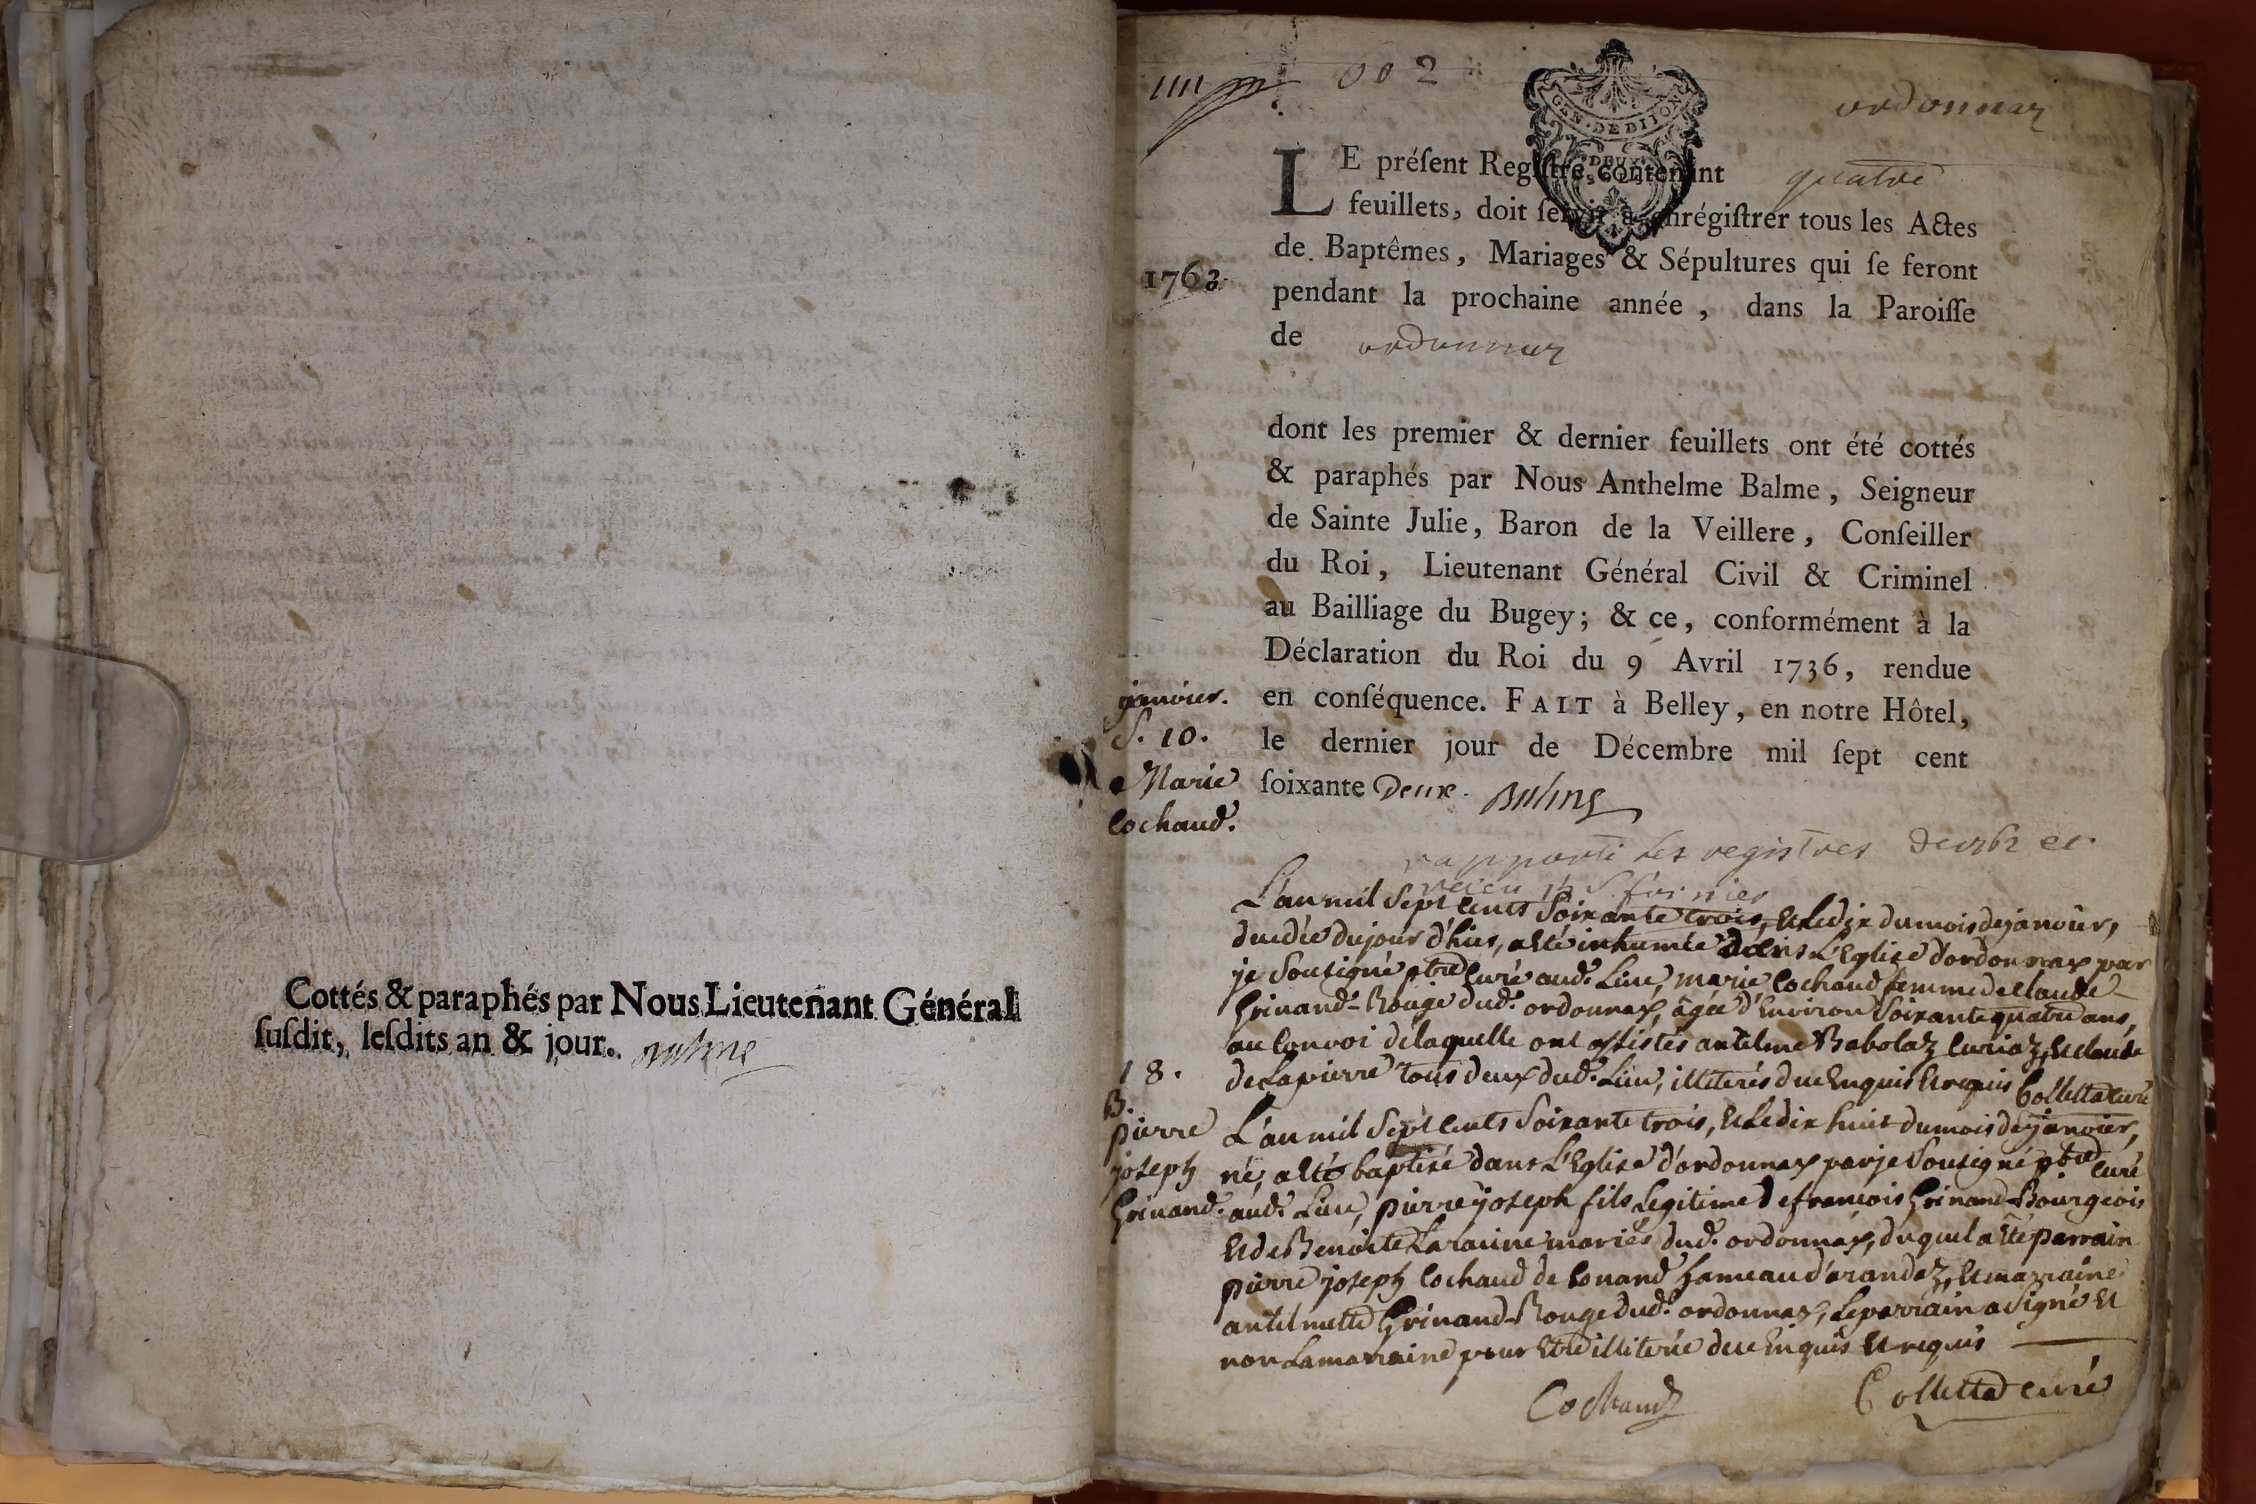 Cottés & paraphés par Nous Lieutenant Général
ſuſdit, leſdits an & jour. Balme
1111 002 ordonnaz
GEN. DE DIJON
DEUX
SOLS
LE préſent Regiſtre contenant quatre
feuillets, doit ſervir à enrégiſtrer tous les Actes
de Baptêmes, Mariages & Sépultures qui ſe feront
1763.
pendant la prochaine année, dans la Paroiſſe
de ordonnaz
dont les premier & dernier feuillets ont été cottés
& paraphés par Nous Anthelme Balme, Seigneur
de Sainte Julie, Baron de la Veillere, Conſeiller
du Roi, Lieutenant Général Civil & Criminel
au Bailliage du Bugey; & ce, conformément à la
Déclaration du Roi du 9 Avril 1736, rendue
en conſéquence. FAIT à Belley, en notre Hôtel,
le dernier jour de Décembre mil ſept cent
ſoixante Deux. Balme
rapporté les registres de 1762 et
janvier.
S. 10.
Marie
Cochaud.
L'an mil sept cents soixante trois, et le dix du mois de janvier,
ducdée du jour d'hier, a eté inhumée dans L'Eglise d'ordonnax par
je soussigné ptre curé aud. Lieu, marie Cochaud femme de claude
Grinand-Rouge dud. ordonnax, agée d'environ soixante quatre ans,
au convoi delaquelle ont assistés antelme Babolaz Curiaz, et claude
de Lapierre tous deux dud. Lieu, illiterés due enquis et requis Collettad curé
18.
B.
pierre
joseph
Grinand.
L'an mil sept cents soixante trois, et le dix huit du mois de janvier,
né, a eté baptisé dans L'Eglise d'ordonnax par je soussigné ptre curé
aud. Lieu, pierre joseph fils Legitime de francois Grinand-Bourgeois
et de Benoite Laracine mariés dud. ordonnax, duquel a eté parrain
pierre joseph Cochaud de Conand hameau d'arandaz, et marraine
antelmette Grinand-Rouge dud. ordonnax, Le parrain a signé et
non La marraine pour etre illiterée due Enquis et requis
Cochaud Collettad curé